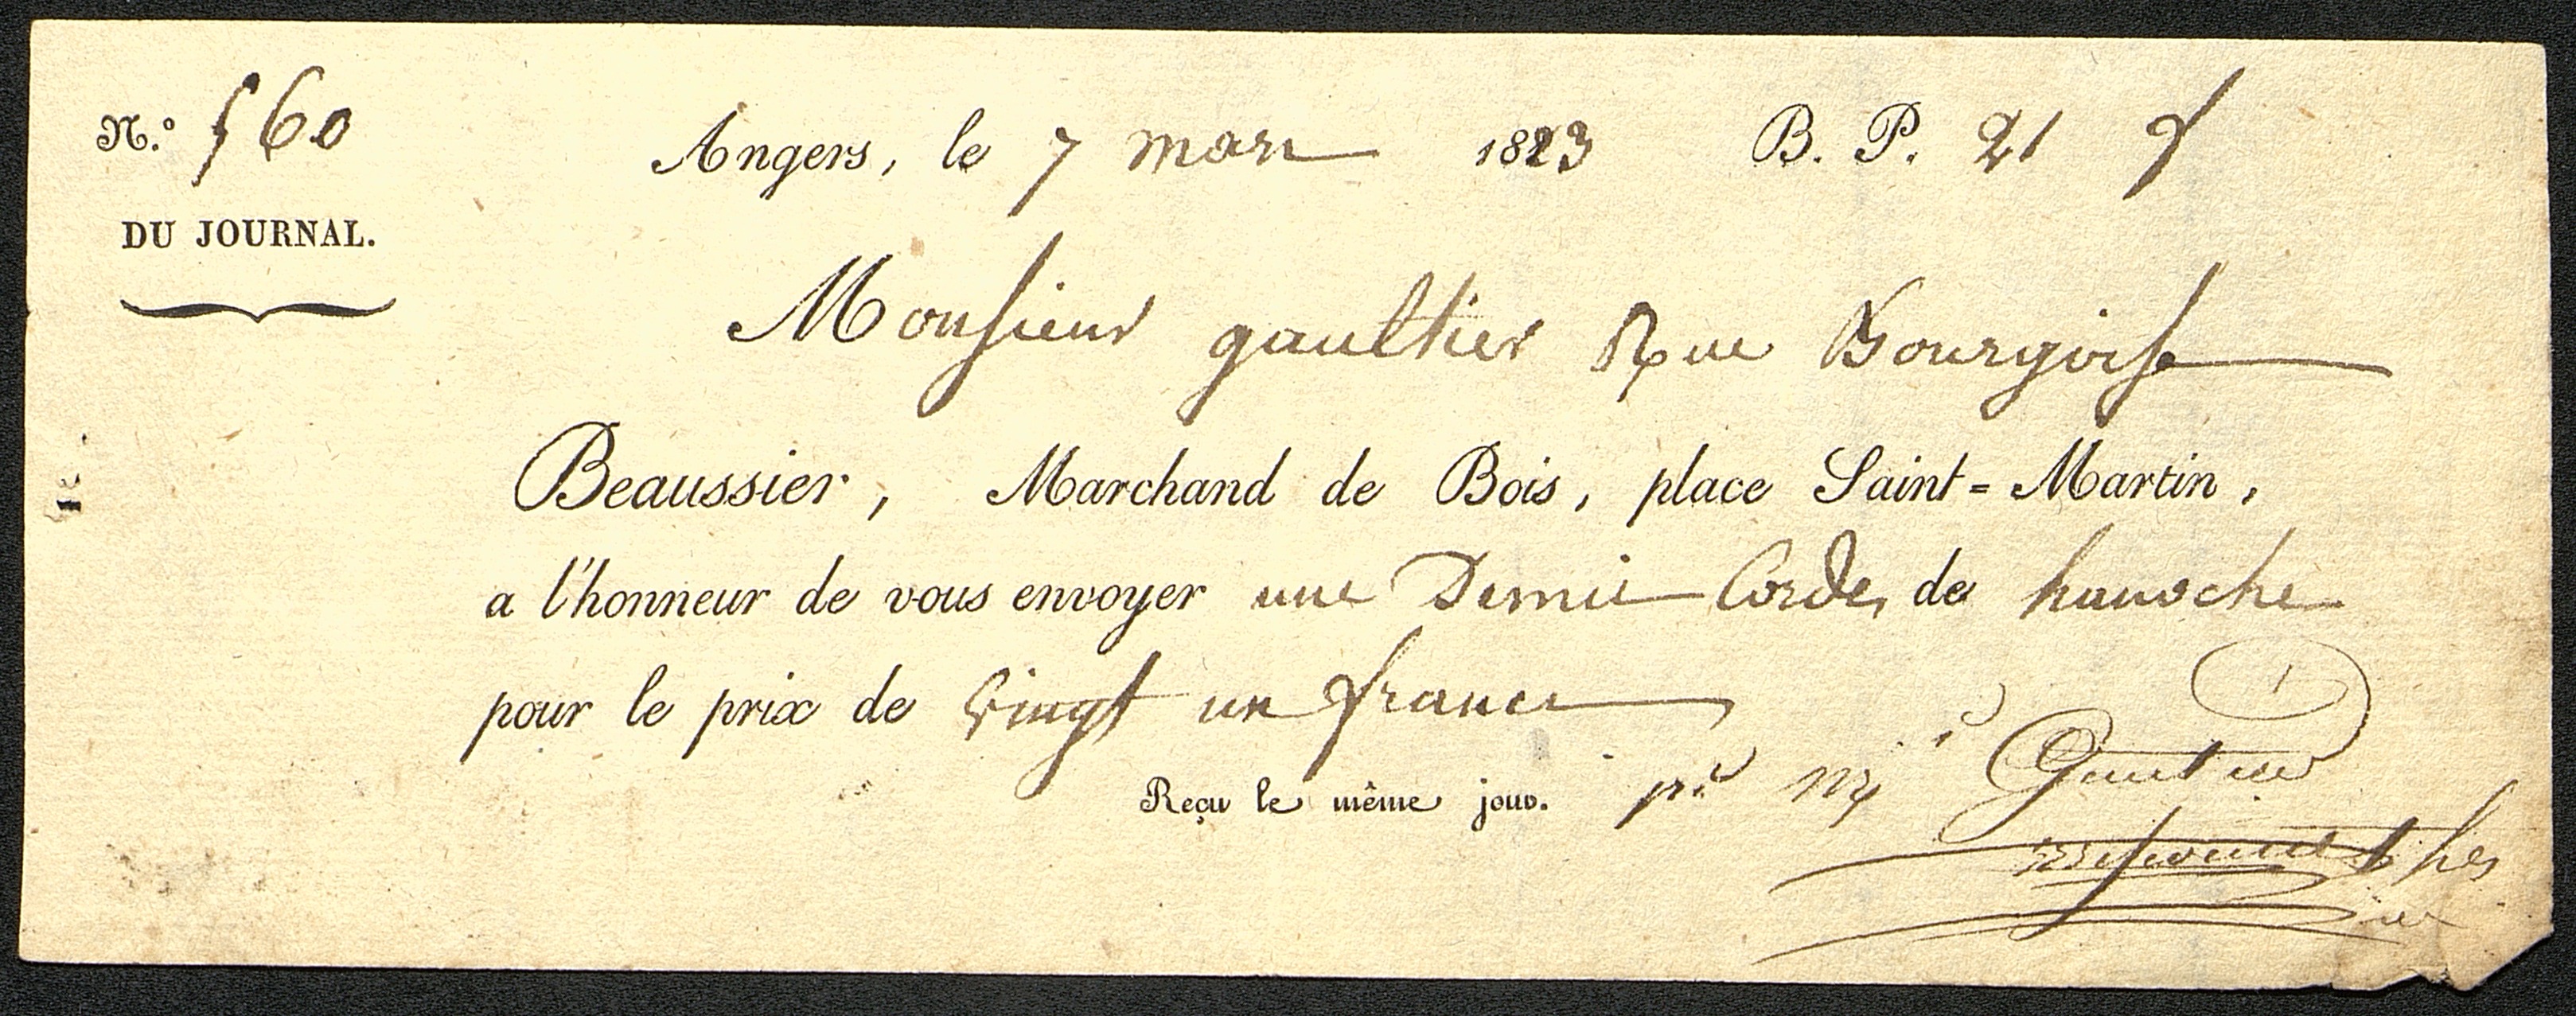 N.º 560 Angers, le 7 mars 1823 B. P. 21 f
DU JOURNAL.
Monsieur gaultier Rue Bourgoise
Beaussier, Marchand de Bois, place Saint=Martin,
a l'honneur de vous envoyer une Demie Corde de
pour le prix de vingt un francs
Reçu le même jour. pr Mr Gautier